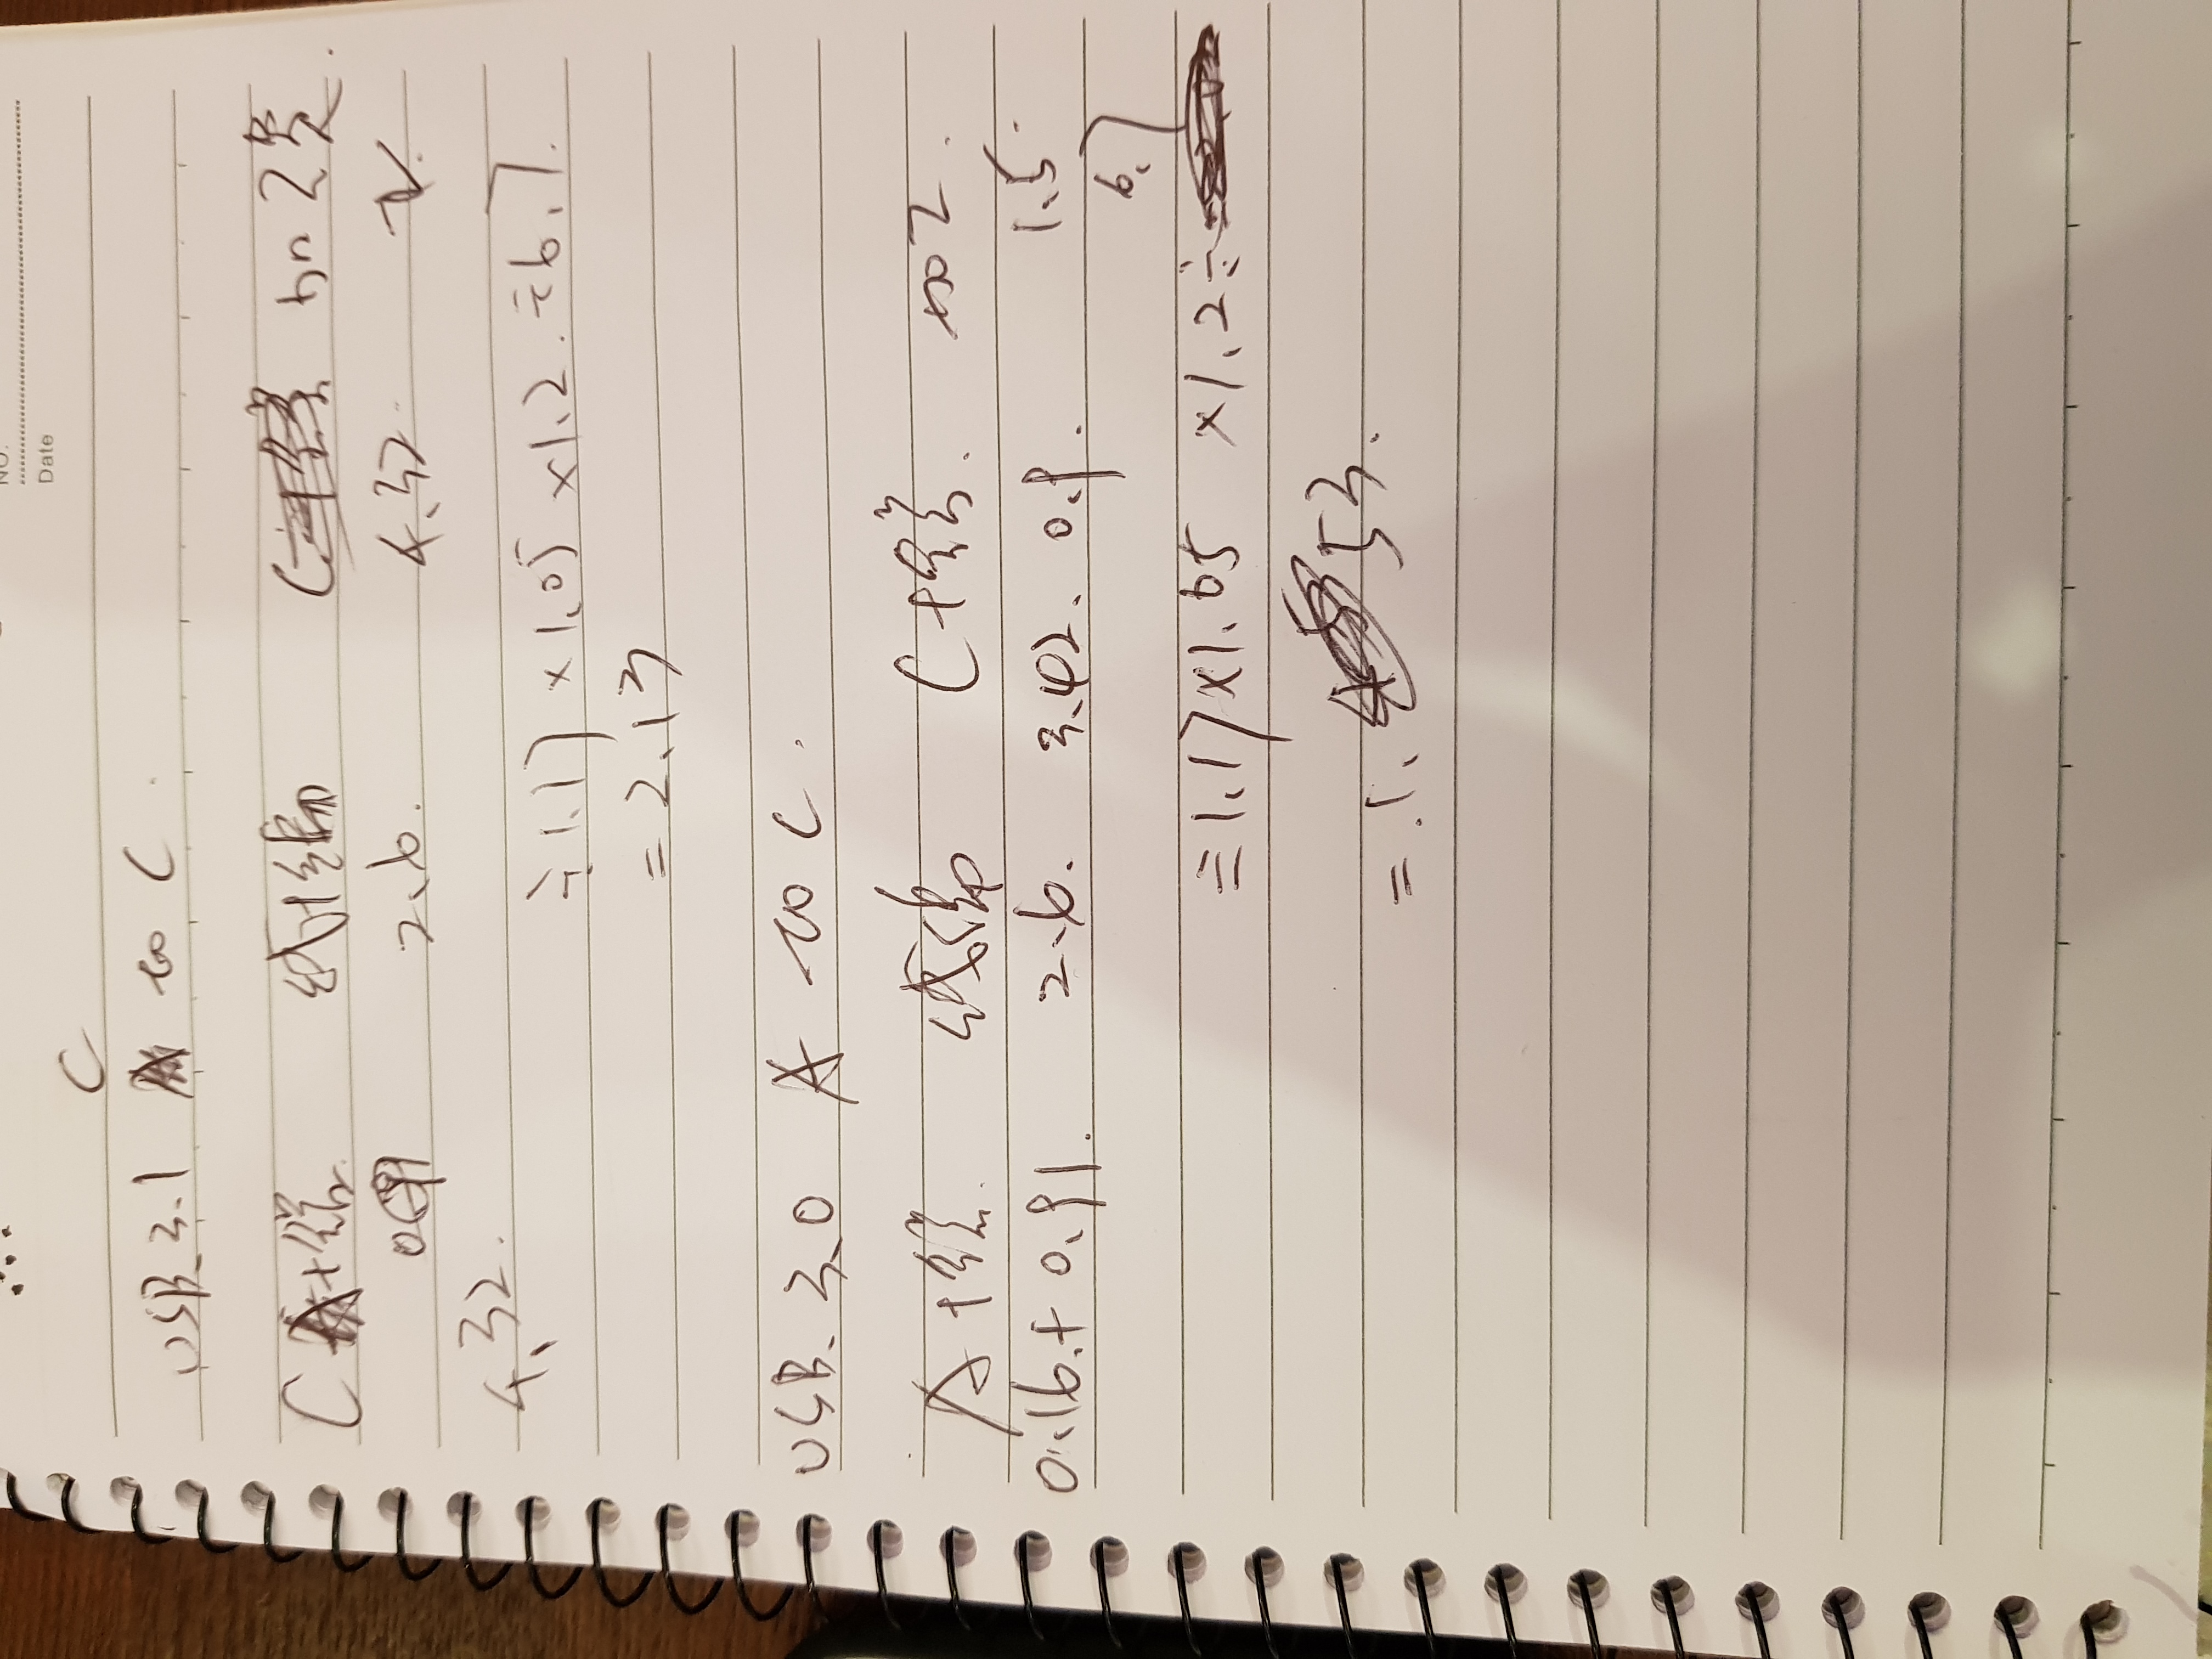 NO.
Date
C
USB 3.1 to C.
C +铝 线+编 C 加工费.
2.6. 4.32. 2.
4.32.
÷1.17 ×1.05 ×1.2. ÷6.7.
= 2.13
USB 3.0 A to C.
A +铝. 线编 C +铝. 加工.
0.16.+ 0.91. 2.6. 3.42. 0.9. 1.5
6.7
÷1.17×1.05 ×1.2÷
= 1. 53.